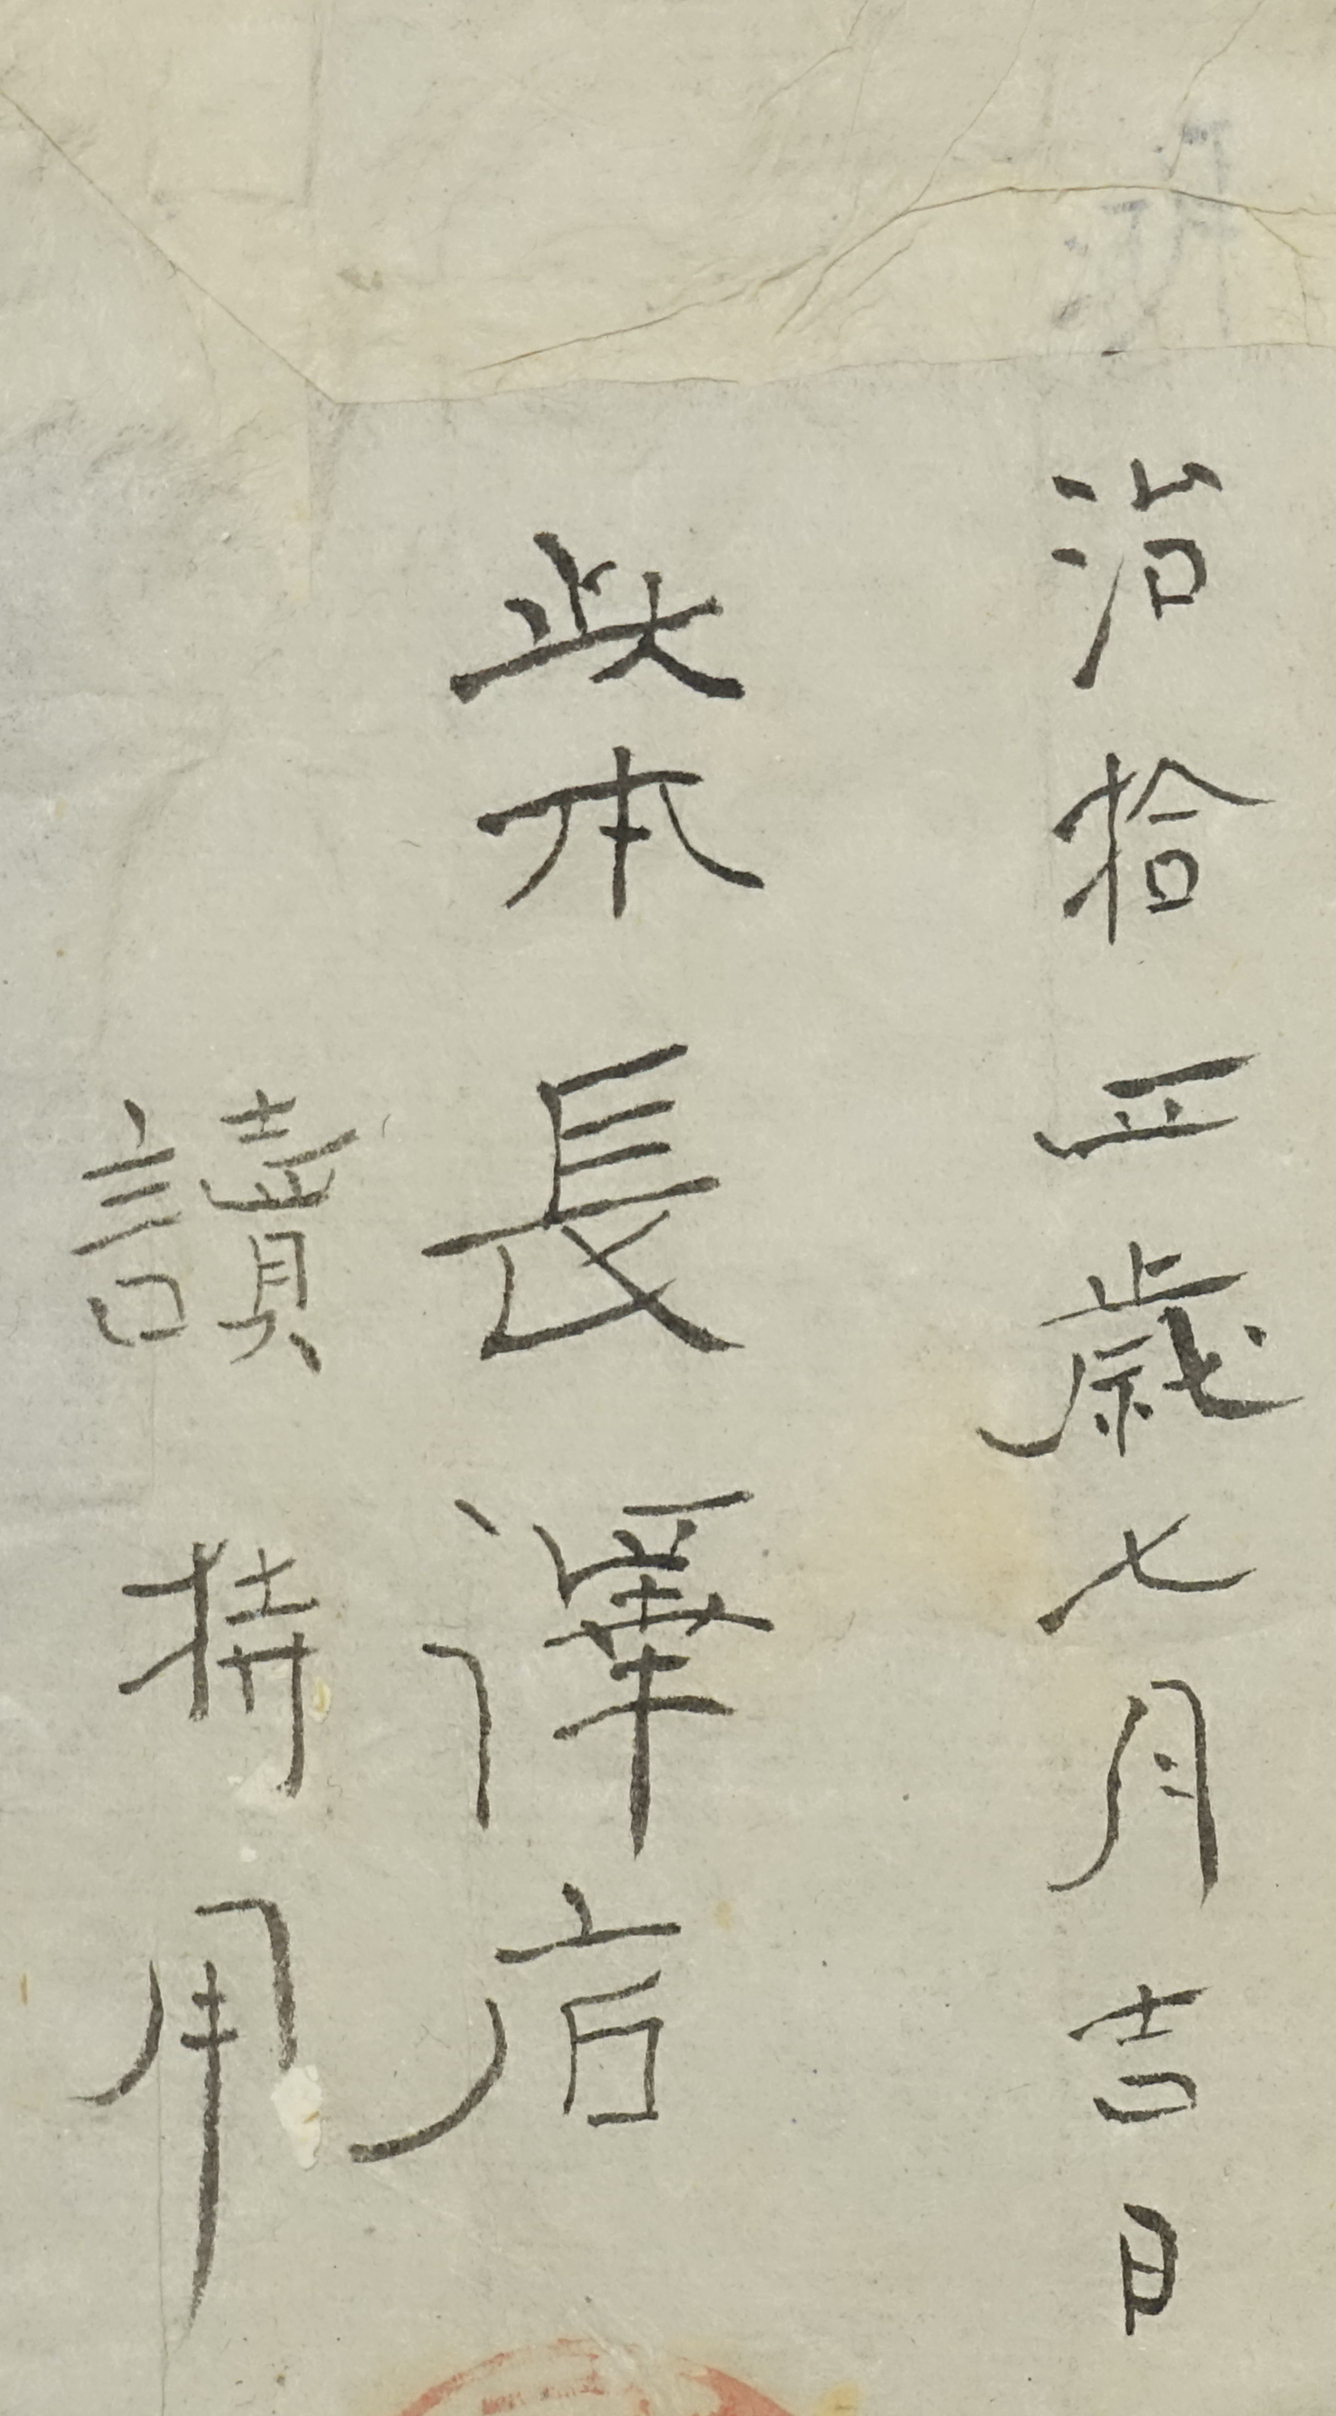 治拾五歳七月吉日
此本長澤店
讀持用